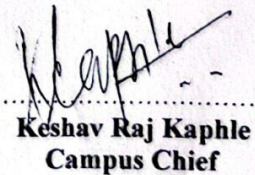 Keshav Raj Kaphle
Campus Chief